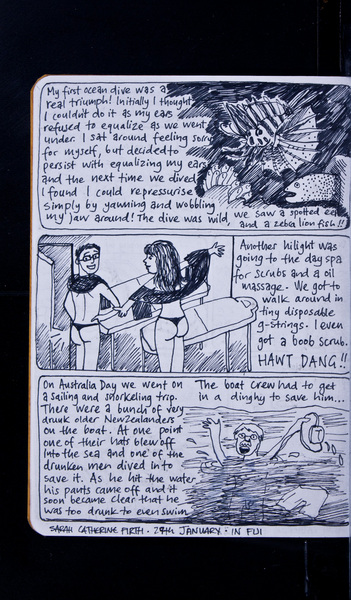 My first ocean dive was a
real triumph! Initially I thought
I couldn't do it as my ears
refused to equalize as we went
under. I sat around feeling sorry
for myself, but decided to
persist with equalizing my ears
and the next time we dived
I found I could repressurise
simply by yawning and wobbling
my jaw around! The dive was wild, we saw a spotted eel
and a zebra lion fish!!
Another hilight was
going to the day spa
for scrubs and a oil
massage. We got to
walk around in
tiny disposable
g-strings. I even
got a boob scrub.
HAWT DANG!!
On Australia Day we went on
a sailing and snorkeling trip.
There were a bunch of very
drunk older New Zealanders
on the boat. At one point
one of their hats blew off
into the sea and one of the
drunken men dived in to
save it. As he hit the water
his pants came off and it
soon became clear that he
was too drunk to even swim.
The boat crew had to get
in a dinghy to save him...
SARAH CATHERINE FIRTH · 29th JANUARY · IN FIJI